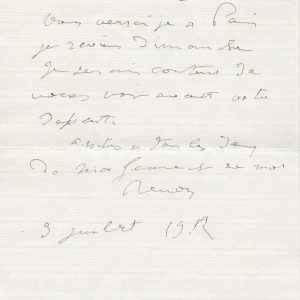 vous verrai je a Paris
je reviens dimanche
Je serais content de
vous voir avant votre
depart.
a vous tous les deux
de ma femme et de moi
Renoir
3 juillet 19